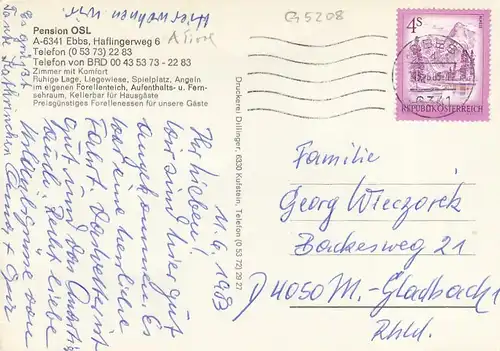 Hier wohnen wir.
G5208
Pension OSL
A-6341 Ebbs, Haflingerweg 6
Telefon (0 53 73) 22 83
Telefon von BRD 00 43 53 73 - 22 83
Zimmer mit Komfort
Ruhige Lage, Liegewiese, Spielplatz, Angeln
im eigenen Forellenteich, Aufenthalts- u. Fern-
sehraum, Kellerbar für Hausgäste
Preisgünstiges Forellenessen für unsere Gäste
Druckerei Dillinger, 6330 Kufstein, Telefon (0 53 72) 29 27
4S
REPUBLIK ÖSTERREICH
EBBS
6341
11.6.1983
Ihr Lieben!
wir sind hier gut
angekommen. Es
war eine herrliche
Fahrt. Das Wetter ist
gut und das Quartier
auch. Recht liebe
Urlaubsgrüße von
Es grüßt
Tante
Familie
Georg Wieczorek
Backesweg 21
D 4050 M.-Gladbach 1
Rhld.